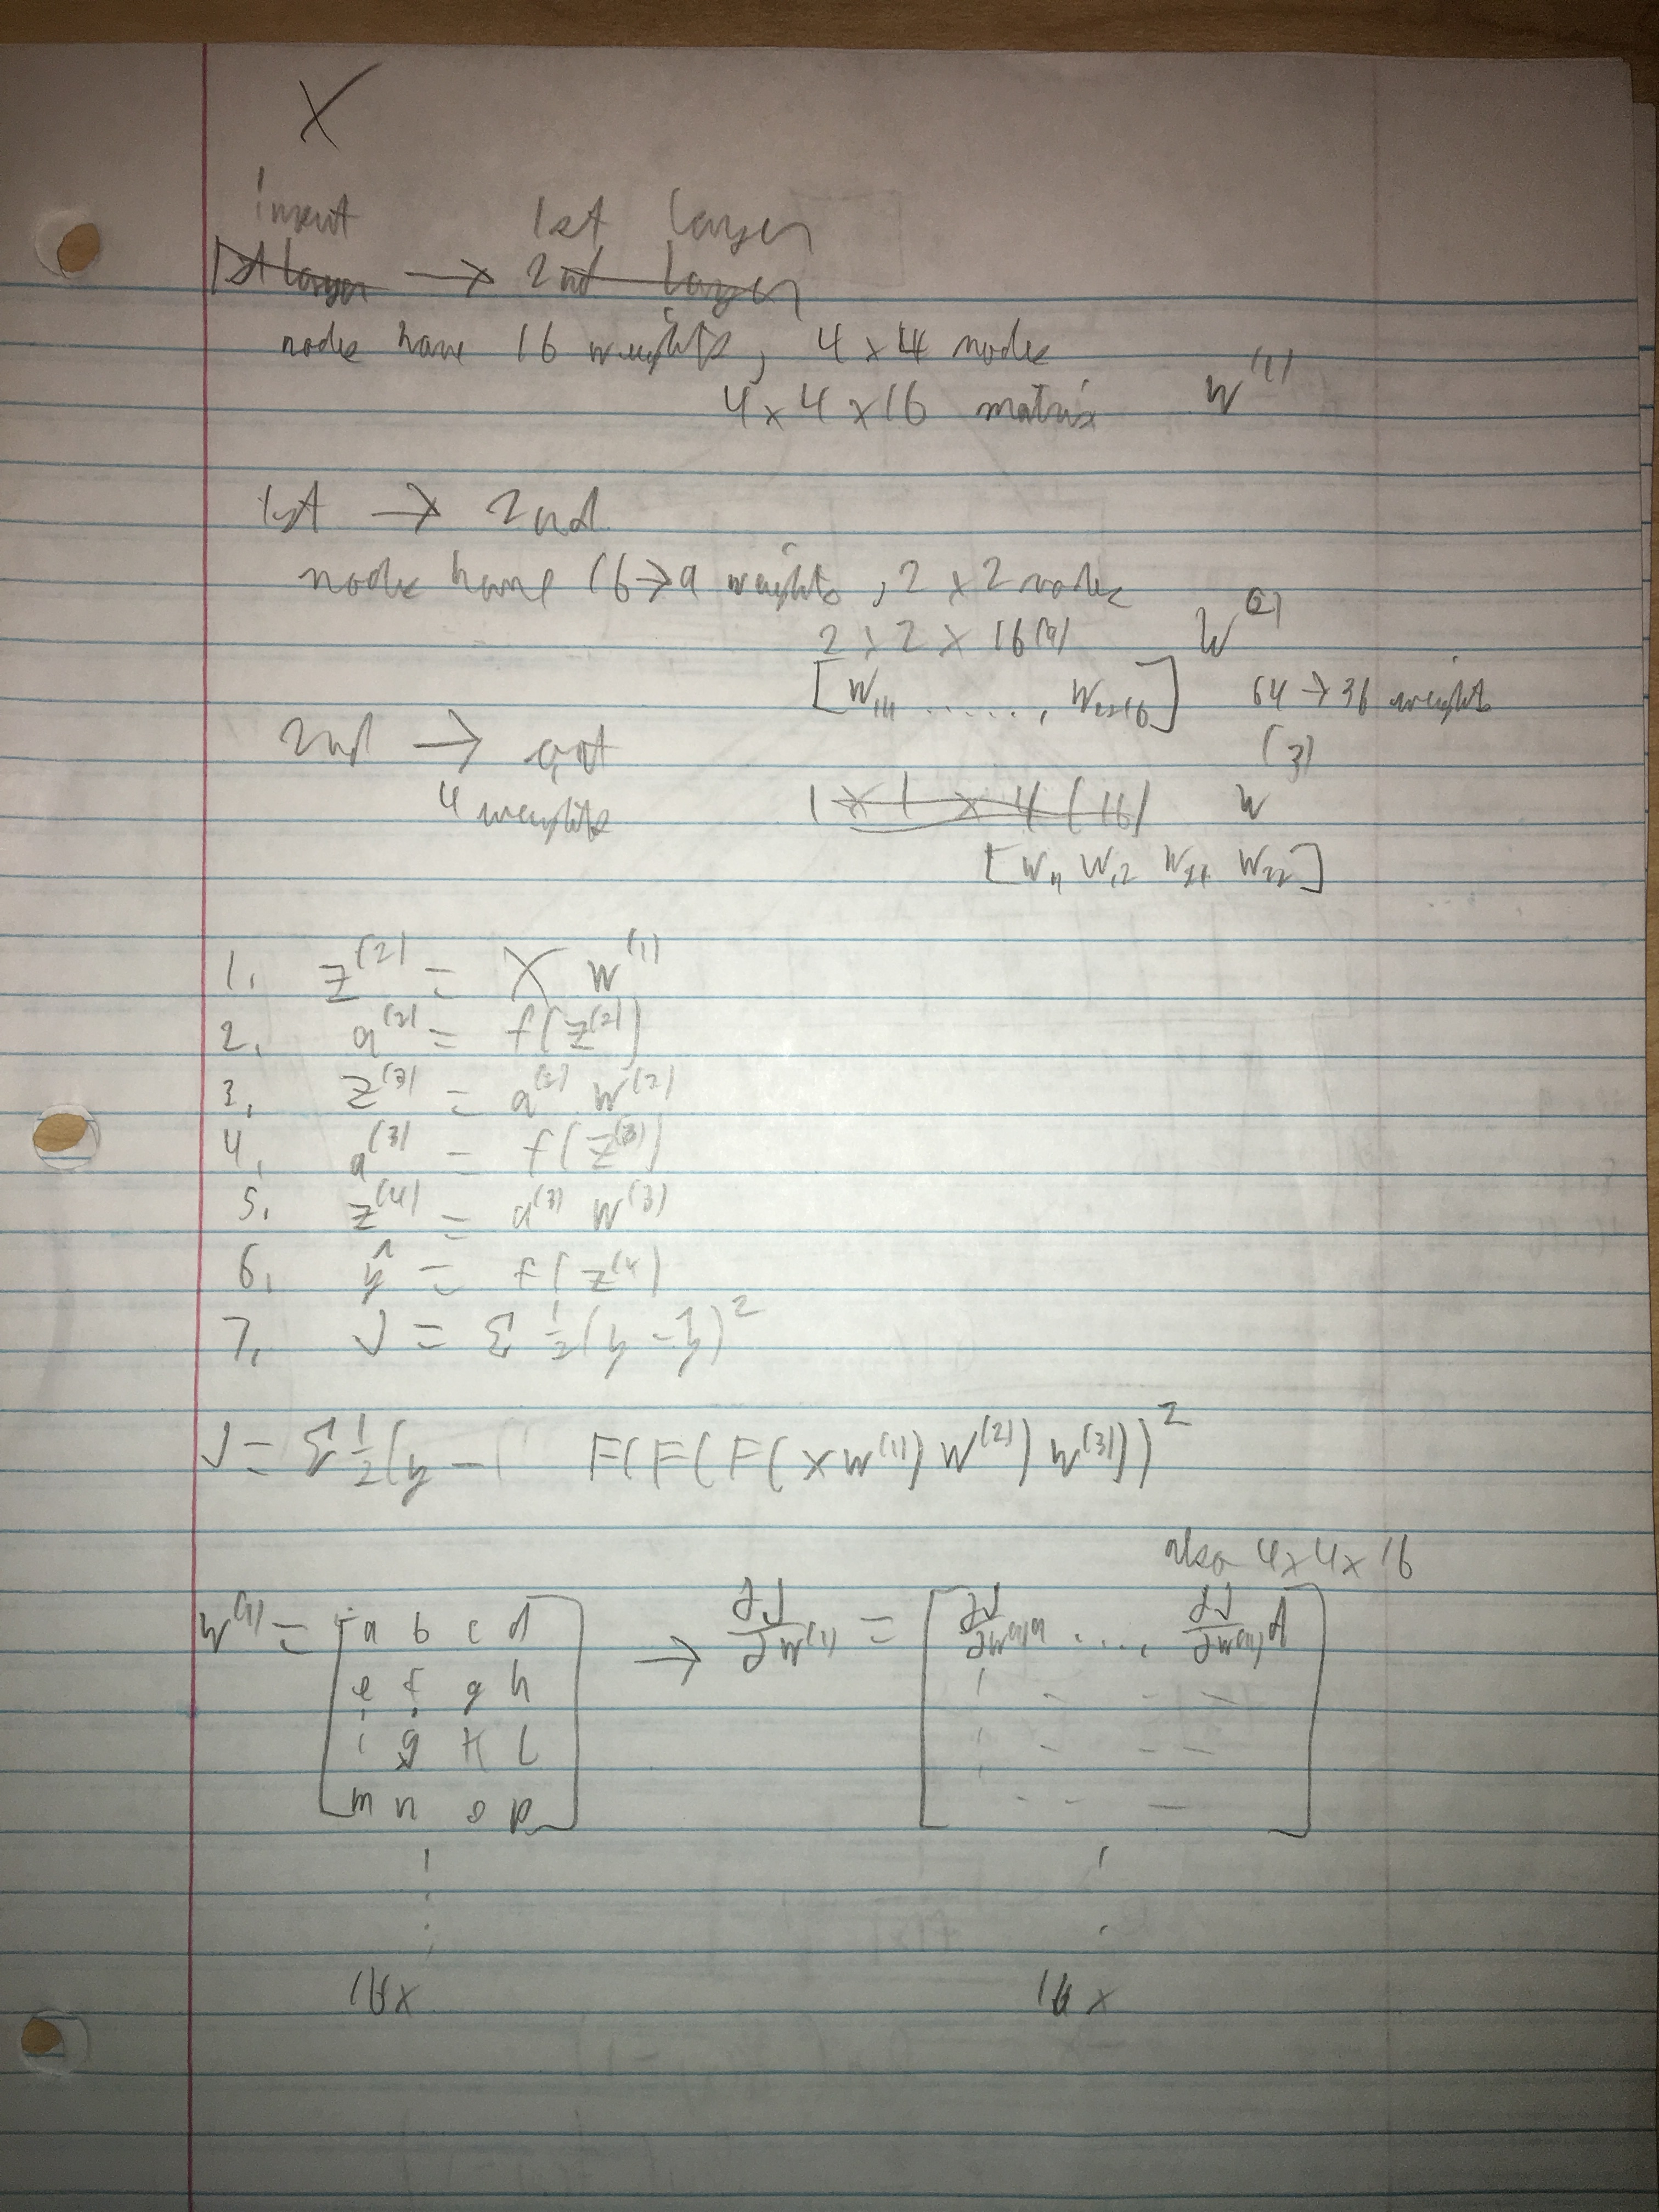 X
input 1st layer
1st layer → 2nd layer
node have 16 weights, 4 x 4 node
4 x 4 x 16 matrix W^(1)
1st → 2nd
node have 16→9 weights, 2 x 2 node
2 x 2 x 16(9) W^(2)
[W₁₁₁ ......, W₂₂₁₆] 64 → 36 weights
2nd → out (3)
4 weights 1 x 1 x 4 (16) W
[W₁₁ W₁₂ W₂₁ W₂₂]
1. z^(2) = X W^(1)
2. a^(2) = f(z^(2))
3. z^(3) = a^(2) W^(2)
4. a^(3) = f(z^(3))
5. z^(4) = a^(3) W^(3)
6. ŷ = f(z^(4)
7. J = Σ ½(y - ŷ)²
J = Σ ½(y - F(F(F(XW^(1)) W^(2)) W^(3)))²
also 4x4x16
W^(1) = [a b c d → ∂J/∂W^(1) = [∂J/∂W^(1)a ...., ∂J/∂W^(1)d]
e f g h
i j k l
m n o p]
16x 16x